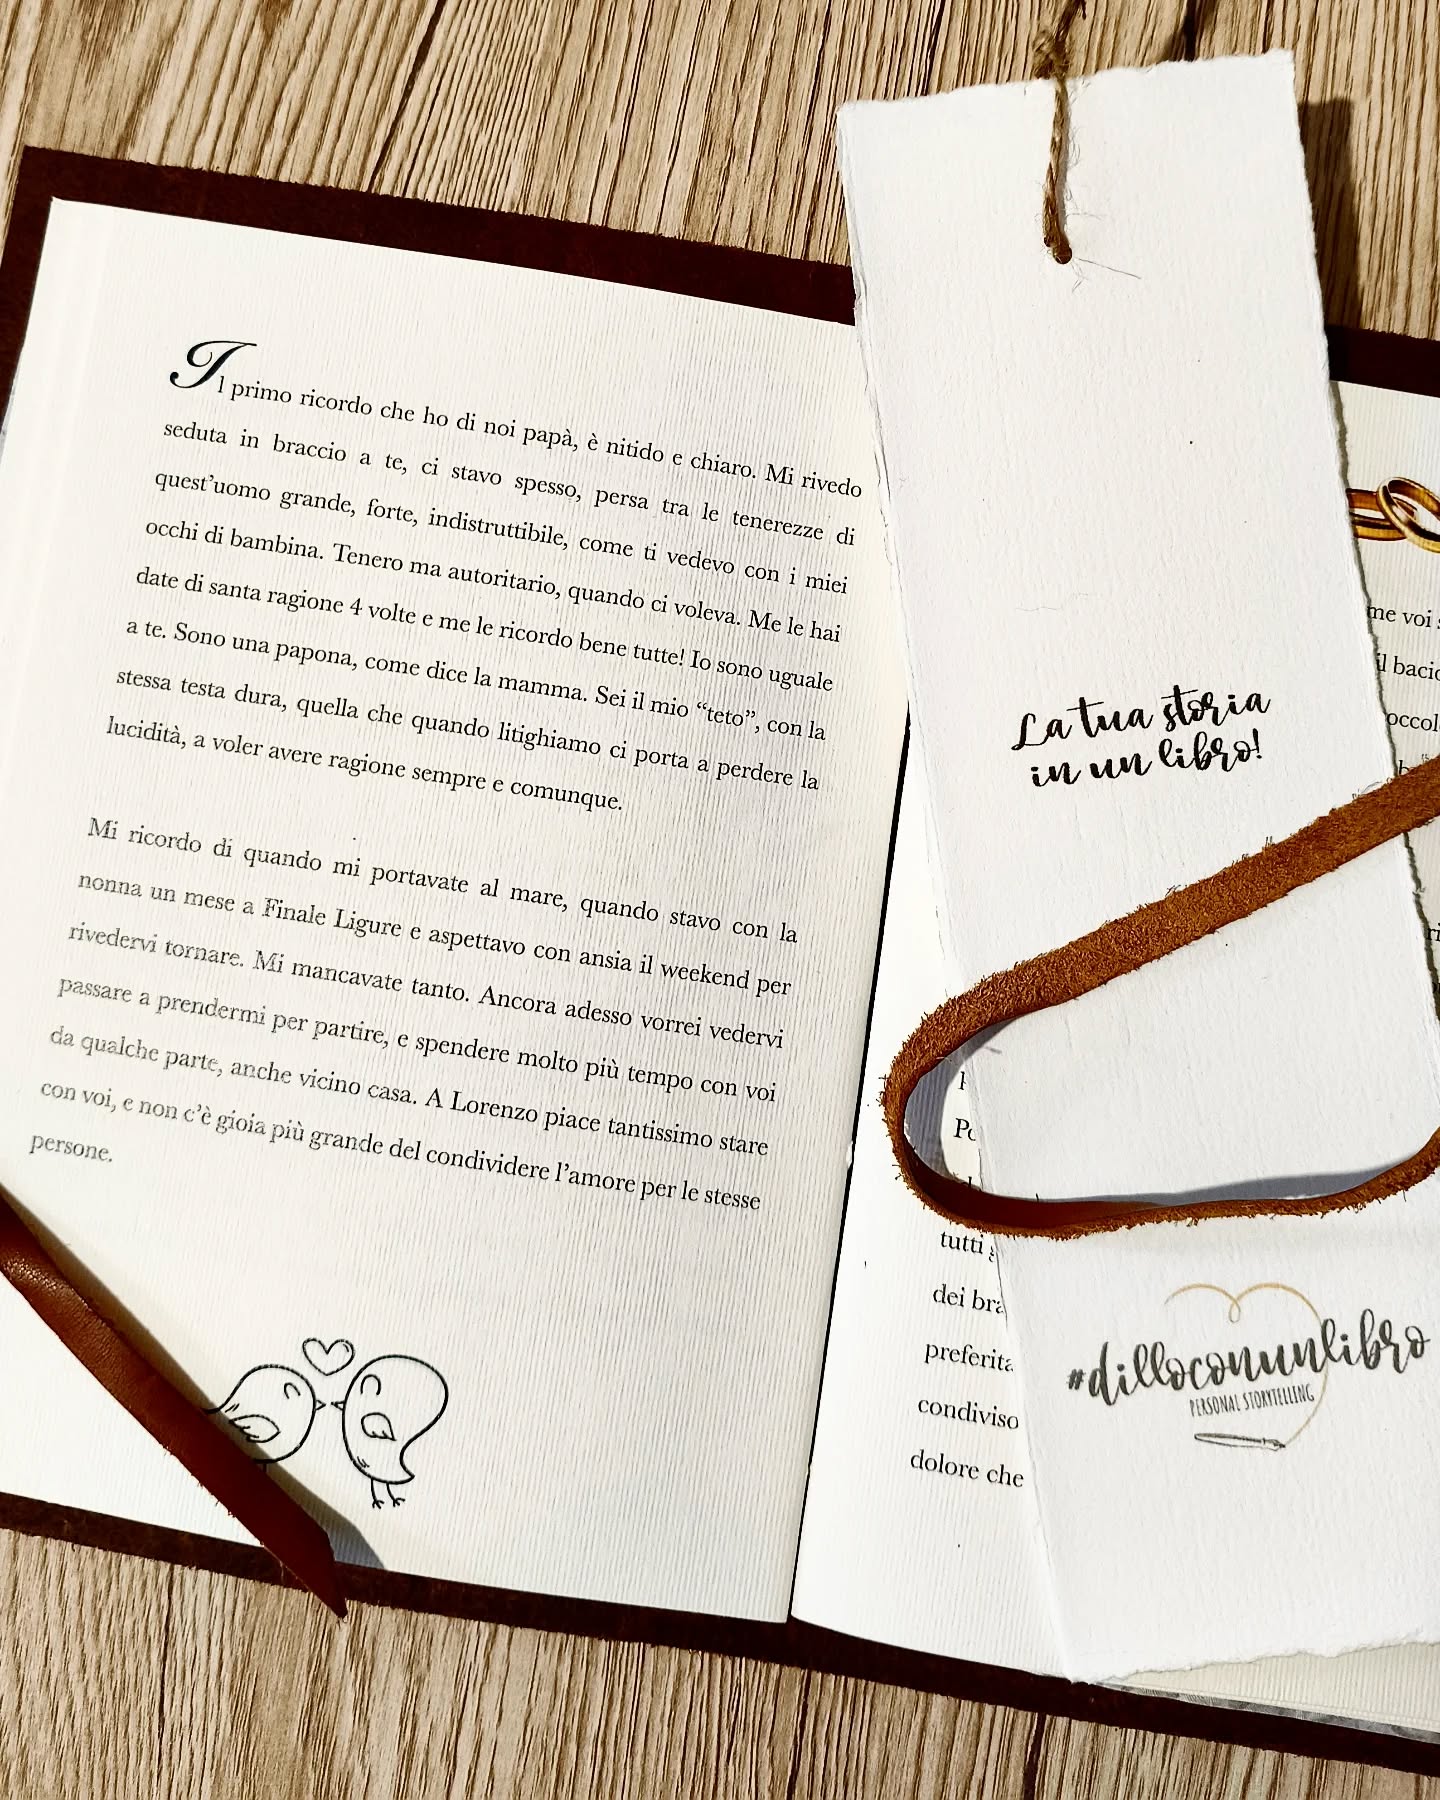 Il primo ricordo che ho di noi papà, è nitido e chiaro. Mi rivedo
seduta in braccio a te, ci stavo spesso, persa tra le tenerezze di
quest'uomo grande, forte, indistruttibile, come ti vedevo con i miei
occhi di bambina. Tenero ma autoritario, quando ci voleva. Me le hai
date di santa ragione 4 volte e me le ricordo bene tutte! Io sono uguale
a te. Sono una papona, come dice la mamma. Sei il mio “teto”, con la
stessa testa dura, quella che quando litighiamo ci porta a perdere la
lucidità, a voler avere ragione sempre e comunque.
Mi ricordo di quando mi portavate al mare, quando stavo con la
nonna un mese a Finale Ligure e aspettavo con ansia il weekend per
rivedervi tornare. Mi mancavate tanto. Ancora adesso vorrei vedervi
passare a prendermi per partire, e spendere molto più tempo con voi
da qualche parte, anche vicino casa. A Lorenzo piace tantissimo stare
con voi, e non c'è gioia più grande del condividere l'amore per le stesse
persone.
La tua storia
in un libro!
#dilloconunlibro
PERSONAL STORYTELLING
me voi
il bacio
tutti
dei
preferita
condiviso
dolore che